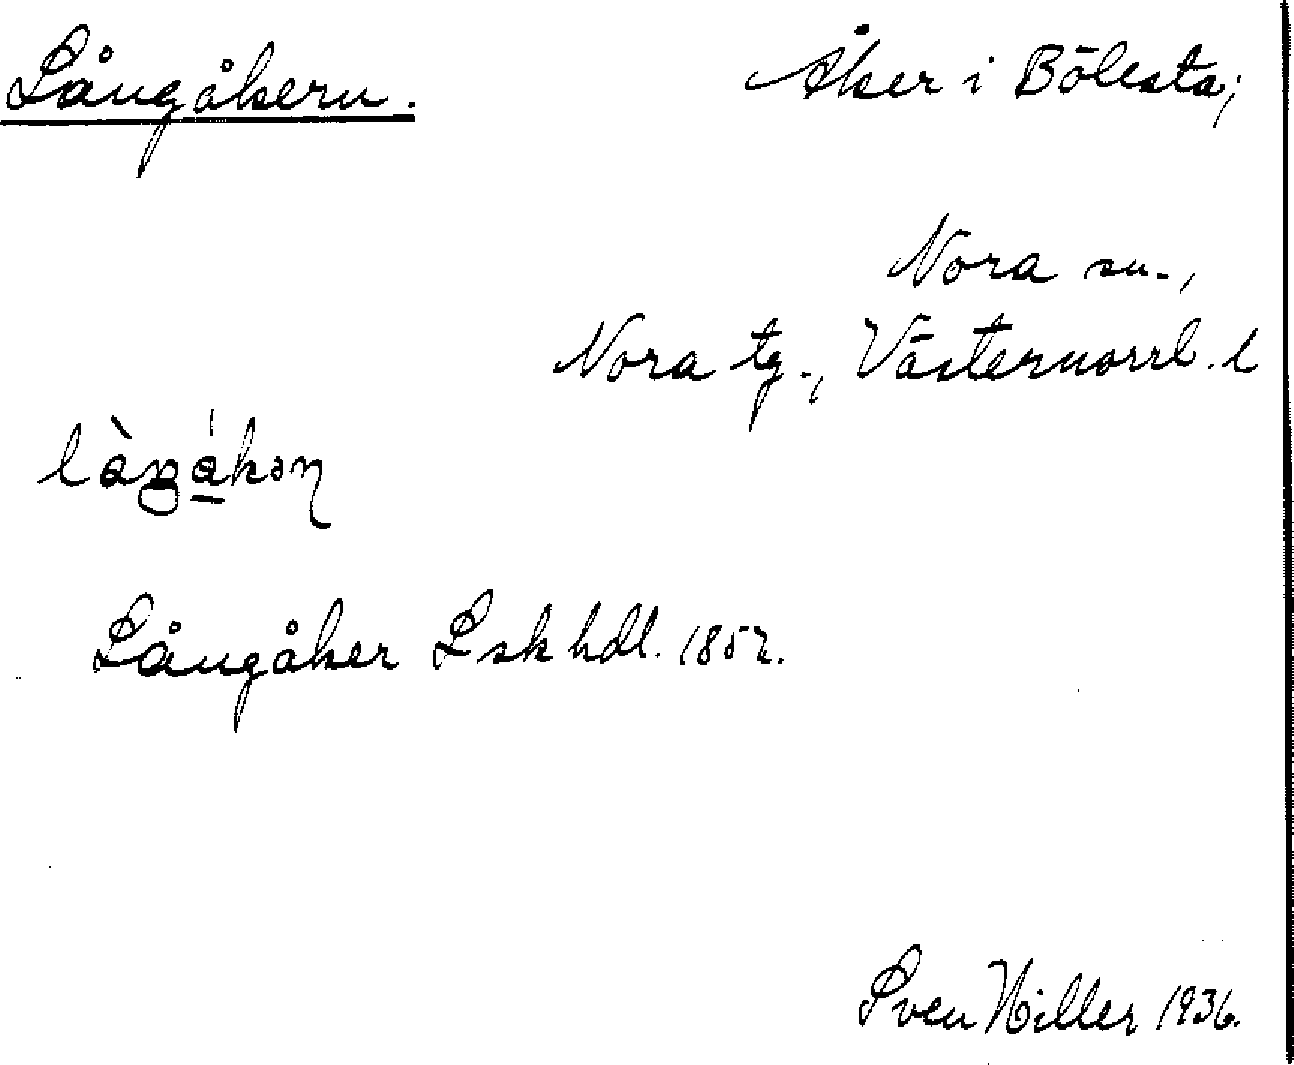 Långåkern.
Åker i Bölesta;
Nora sn.,
Nora tg., Västernorrl. l
Långåker Lsk hdl. 1857.
Sven Hiller 1936.